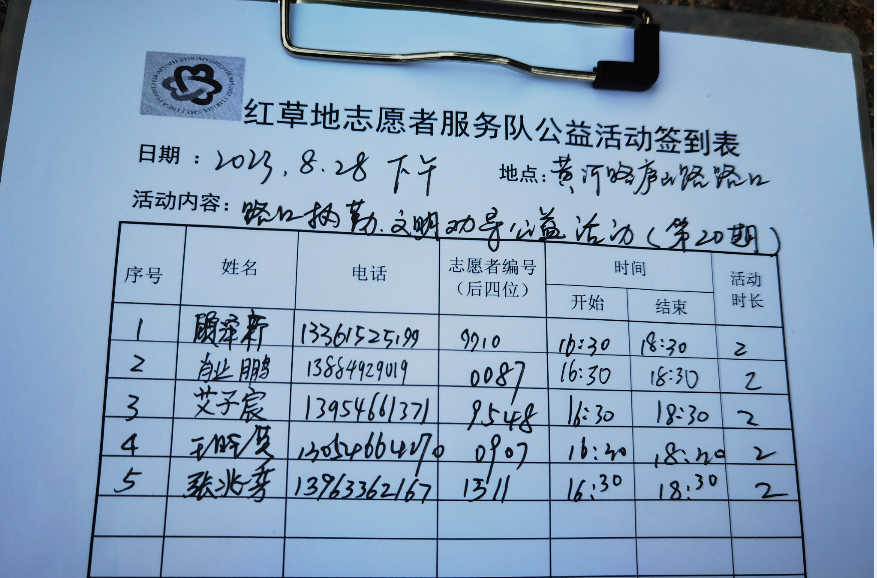 红草地志愿者服务队公益活动签到表
日期：2023.8.28 下午 地点：黄河路庐山路路口
活动内容：路口执勤、文明劝导公益活动（第20期）
序号 姓名 电话 志愿者编号（后四位） 时间 开始 结束 活动时长
1 顾泽新 13361525199 9910 16:30 18:30 2
2 肖业鹏 13884929019 0087 16:30 18:30 2
3 艾子宸 13954661371 9548 16:30 18:30 2
4 0907 16:30 18:30 2
5 张兆 13963362167 1311 16:30 18:30 2